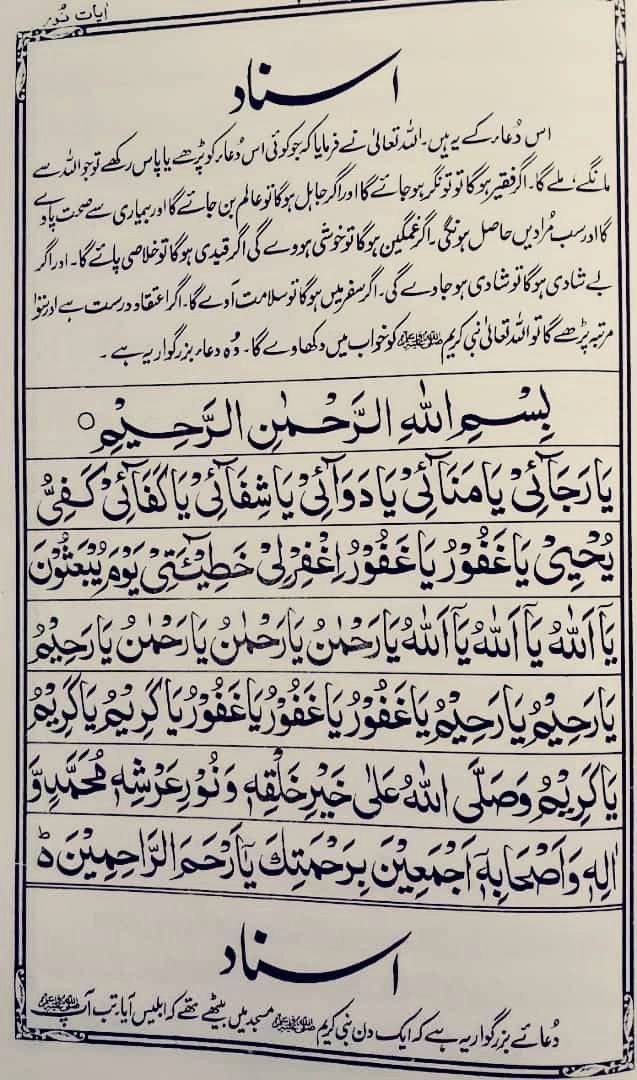 آیات نُور
اسناد
اس دُعاء کے یہ ہیں۔ اللہ تعالیٰ نے فرمایا کہ جو کوئی اس دُعاء کو پڑھے یا پاس رکھے تو جو اللہ سے
مانگے، ملے گا۔ اگر فقیر ہوگا تو تونگر ہو جائے گا اور اگر جاہل ہوگا تو عالم بن جائے گا اور بیماری سے صحت پاوے
گا اور سب مُرادیں حاصل ہونگی۔ اگر غمگین ہوگا تو خوشی ہووے گی اگر قیدی ہوگا تو خلاصی پائے گا۔ اور اگر
بے شادی ہوگا تو شادی ہو جاوے گی۔ اگر سفر میں ہوگا تو سلامت آوے گا۔ اگر اعتقاد درست ہے اور سَو
مرتبہ پڑھے گا تو اللہ تعالیٰ نبی کریم ﷺ کو خواب میں دکھاوے گا۔ وُہ دعاء بزرگوار یہ ہے۔
بِسْمِ اللهِ الرَّحْمٰنِ الرَّحِيْمِ ○
يَا رَجَآئِىْ يَا مَنَآئِىْ يَا دَوَآئِىْ يَا شِفَآئِىْ يَا كَفَآئِىْ كَفِىُّ
يُحْيِىْ يَا غَفُوْرُ يَا غَفُوْرُ اِغْفِرْلِىْ خَطِيْٓـئَتِىْ يَوْمَ يُبْعَثُوْنَ
يَآ اَللهُ يَآ اَللهُ يَآ اَللهُ يَا رَحْمٰنُ يَا رَحْمٰنُ يَا رَحْمٰنُ يَا رَحِيْمُ
يَا رَحِيْمُ يَا رَحِيْمُ يَا غَفُوْرُ يَا غَفُوْرُ يَا غَفُوْرُ يَا كَرِيْمُ يَا كَرِيْمُ
يَا كَرِيْمُ وَصَلَّى اللهُ عَلٰى خَيْرِ خَلْقِهٖ وَنُوْرِ عَرْشِهٖ مُحَمَّدٍ وَّ
اٰلِهٖ وَاَصْحَابِهٖٓ اَجْمَعِيْنَ بِرَحْمَتِكَ يَآ اَرْحَمَ الرَّاحِمِيْنَ ط
اسناد
دُعائے بزرگوار یہ ہے کہ ایک دن نبی کریم ﷺ مسجد میں بیٹھے تھے کہ ابلیس آیا۔ تب آپ ﷺ